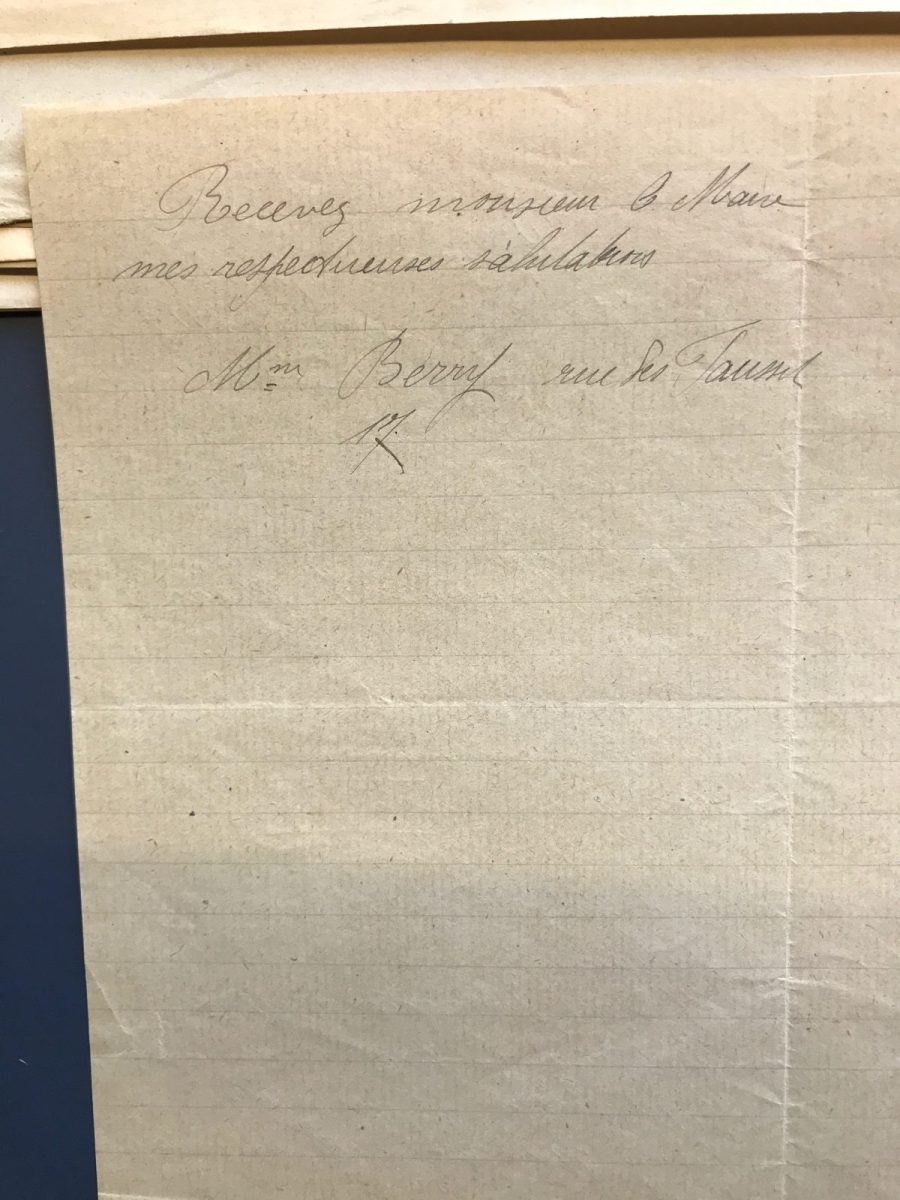 Recevez monsieur le Maire
mes respectueuses salutations
Mm Berry rue des
17